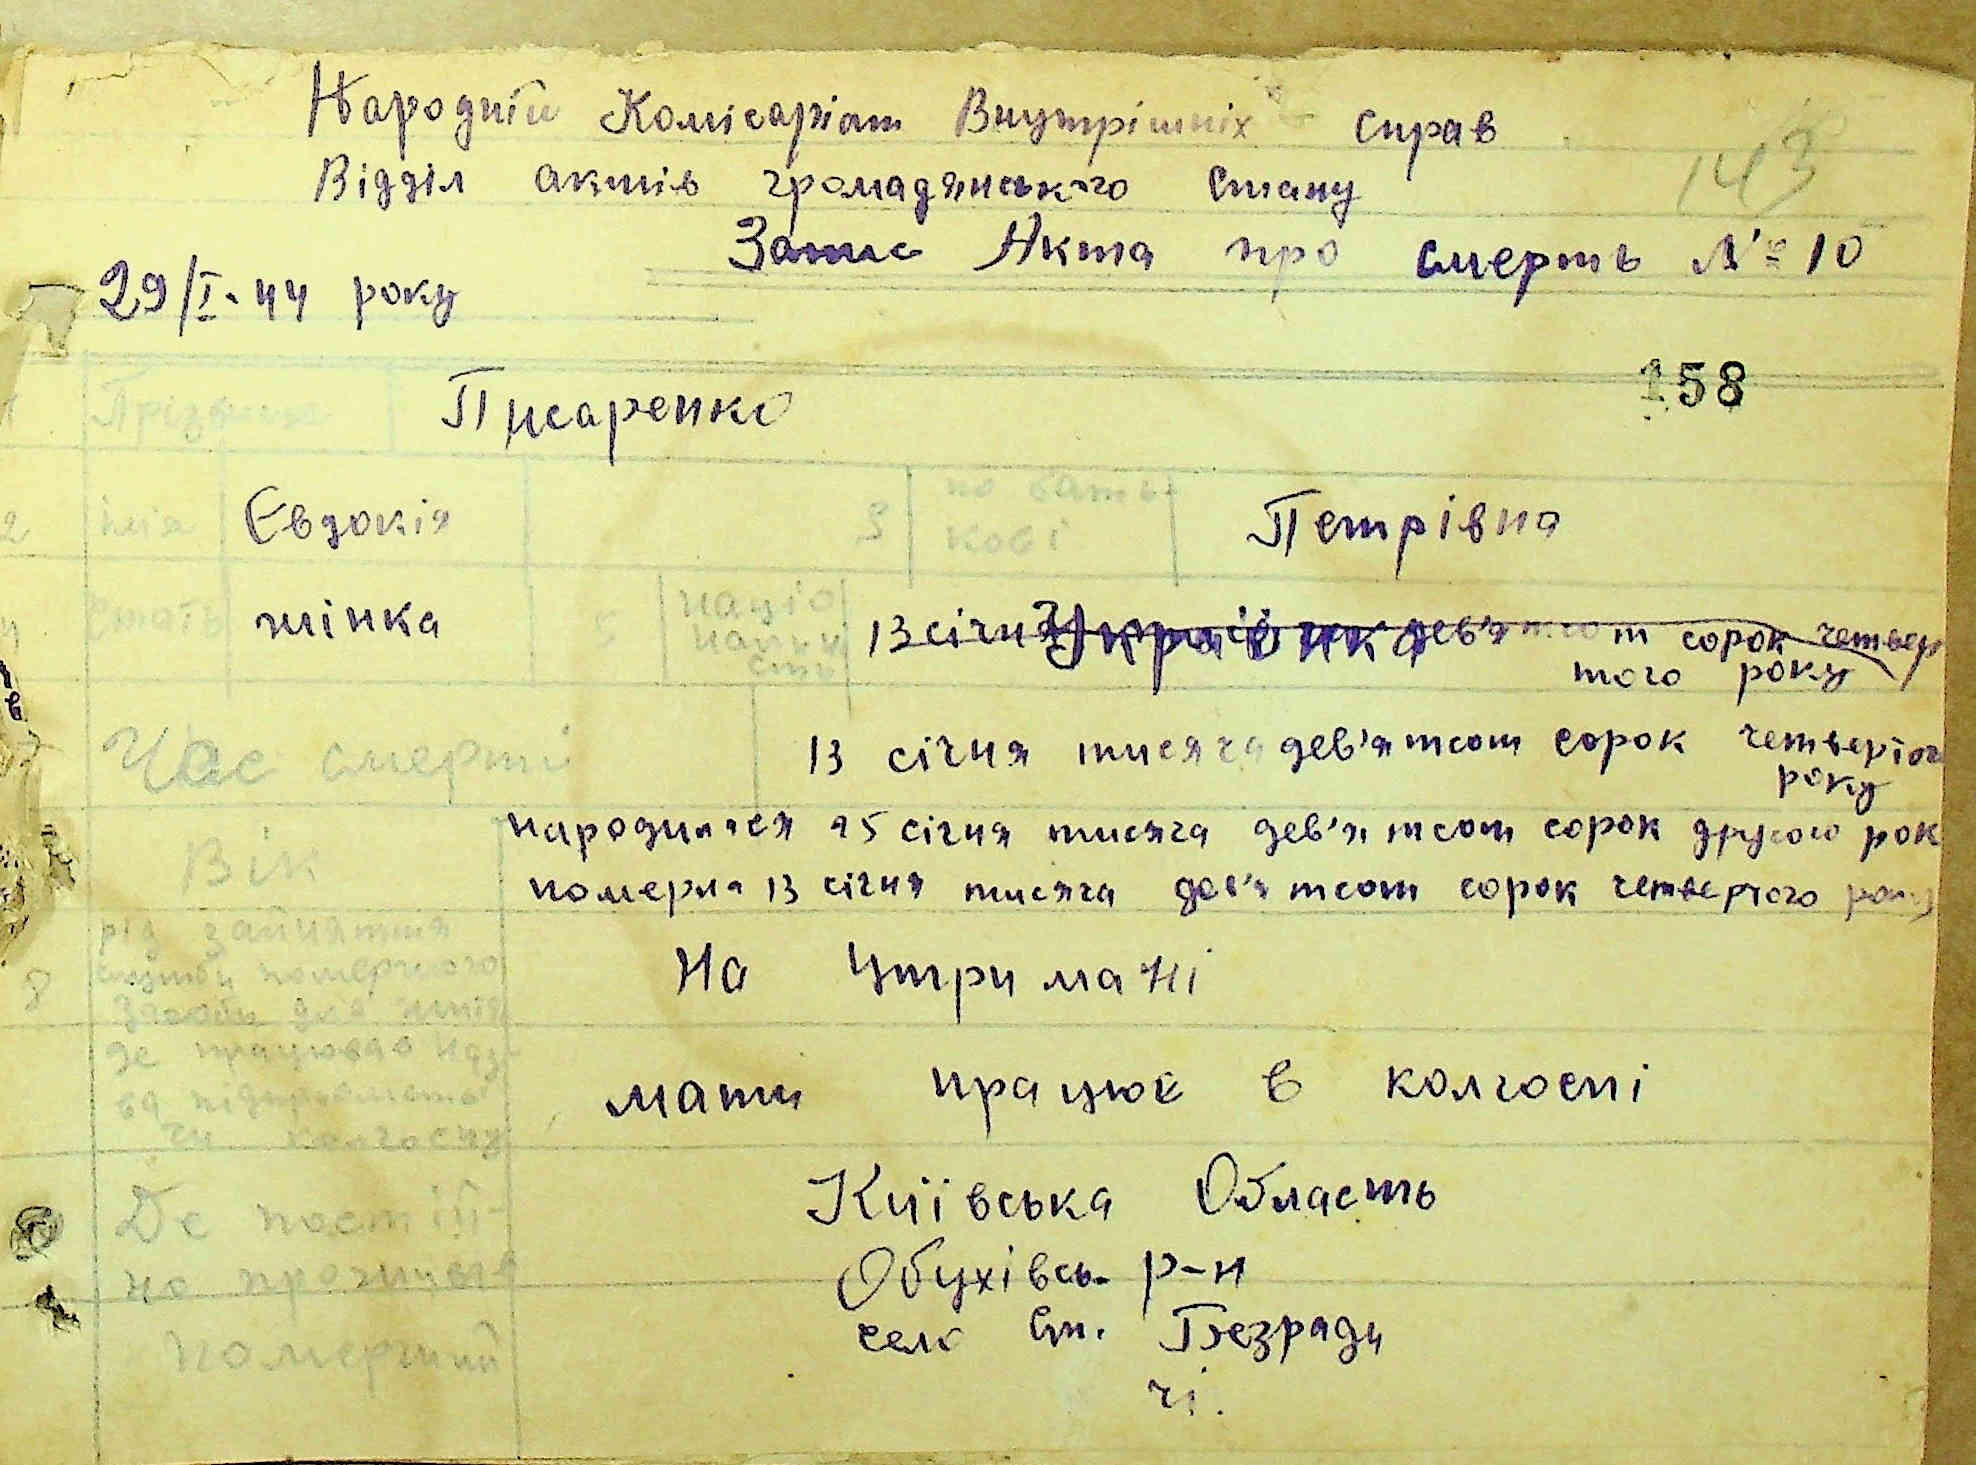 Народній Комісаріат Внутрішніх справ
143
Відділ актів громадянського стану
Запис Акта про смерть № 10
29/I-44 року
158
1 Прізвище Писаренко
2 імя Євдокія 3 по батькові Петрівна
4 стать жінка 5 націо
нальни
сть 13 січня Українка дев'ятсот сорок четвер
того року
Час смерті 13 січня тисяча дев'ятсот сорок четвертого
року
Вік народилася 25 січня тисяча дев'ятсот сорок другого рок
померла 13 січня тисяча дев'ятсот сорок четвертого року
8 рід заняття
служби померлого
засоби для життя
де працював наз
ва підприємства
чи колгоспу
На утримані
мати працює в колгоспі
Де постій-
но проживав
померший
Київська Область
Обухівсь. р-н
село Ст. Безради
чі.